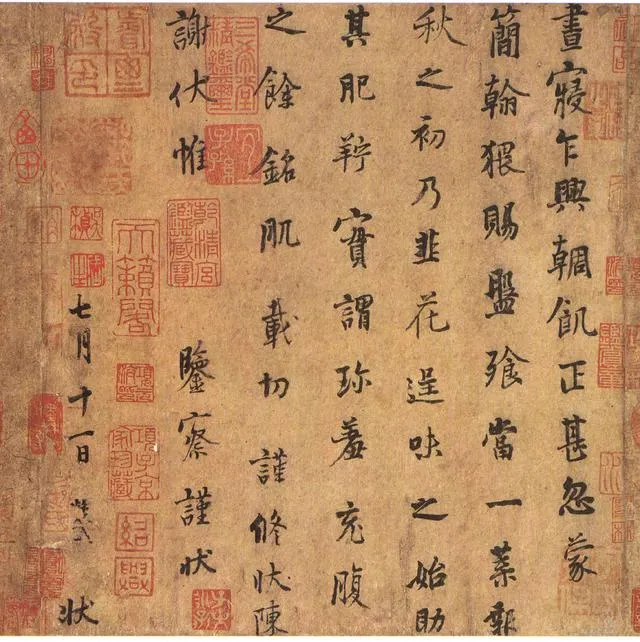 晝寢乍興輖飢正甚忽蒙
簡翰猥賜盤飧當一葉報
秋之初乃韭花逞味之始助
其肥羜實謂珍羞充腹
之餘銘肌載切謹修狀陳
謝伏惟 鑒察謹狀
七月十一日 狀
三希堂精鑑璽
宜子孫
天籟閣
項子京家珍藏